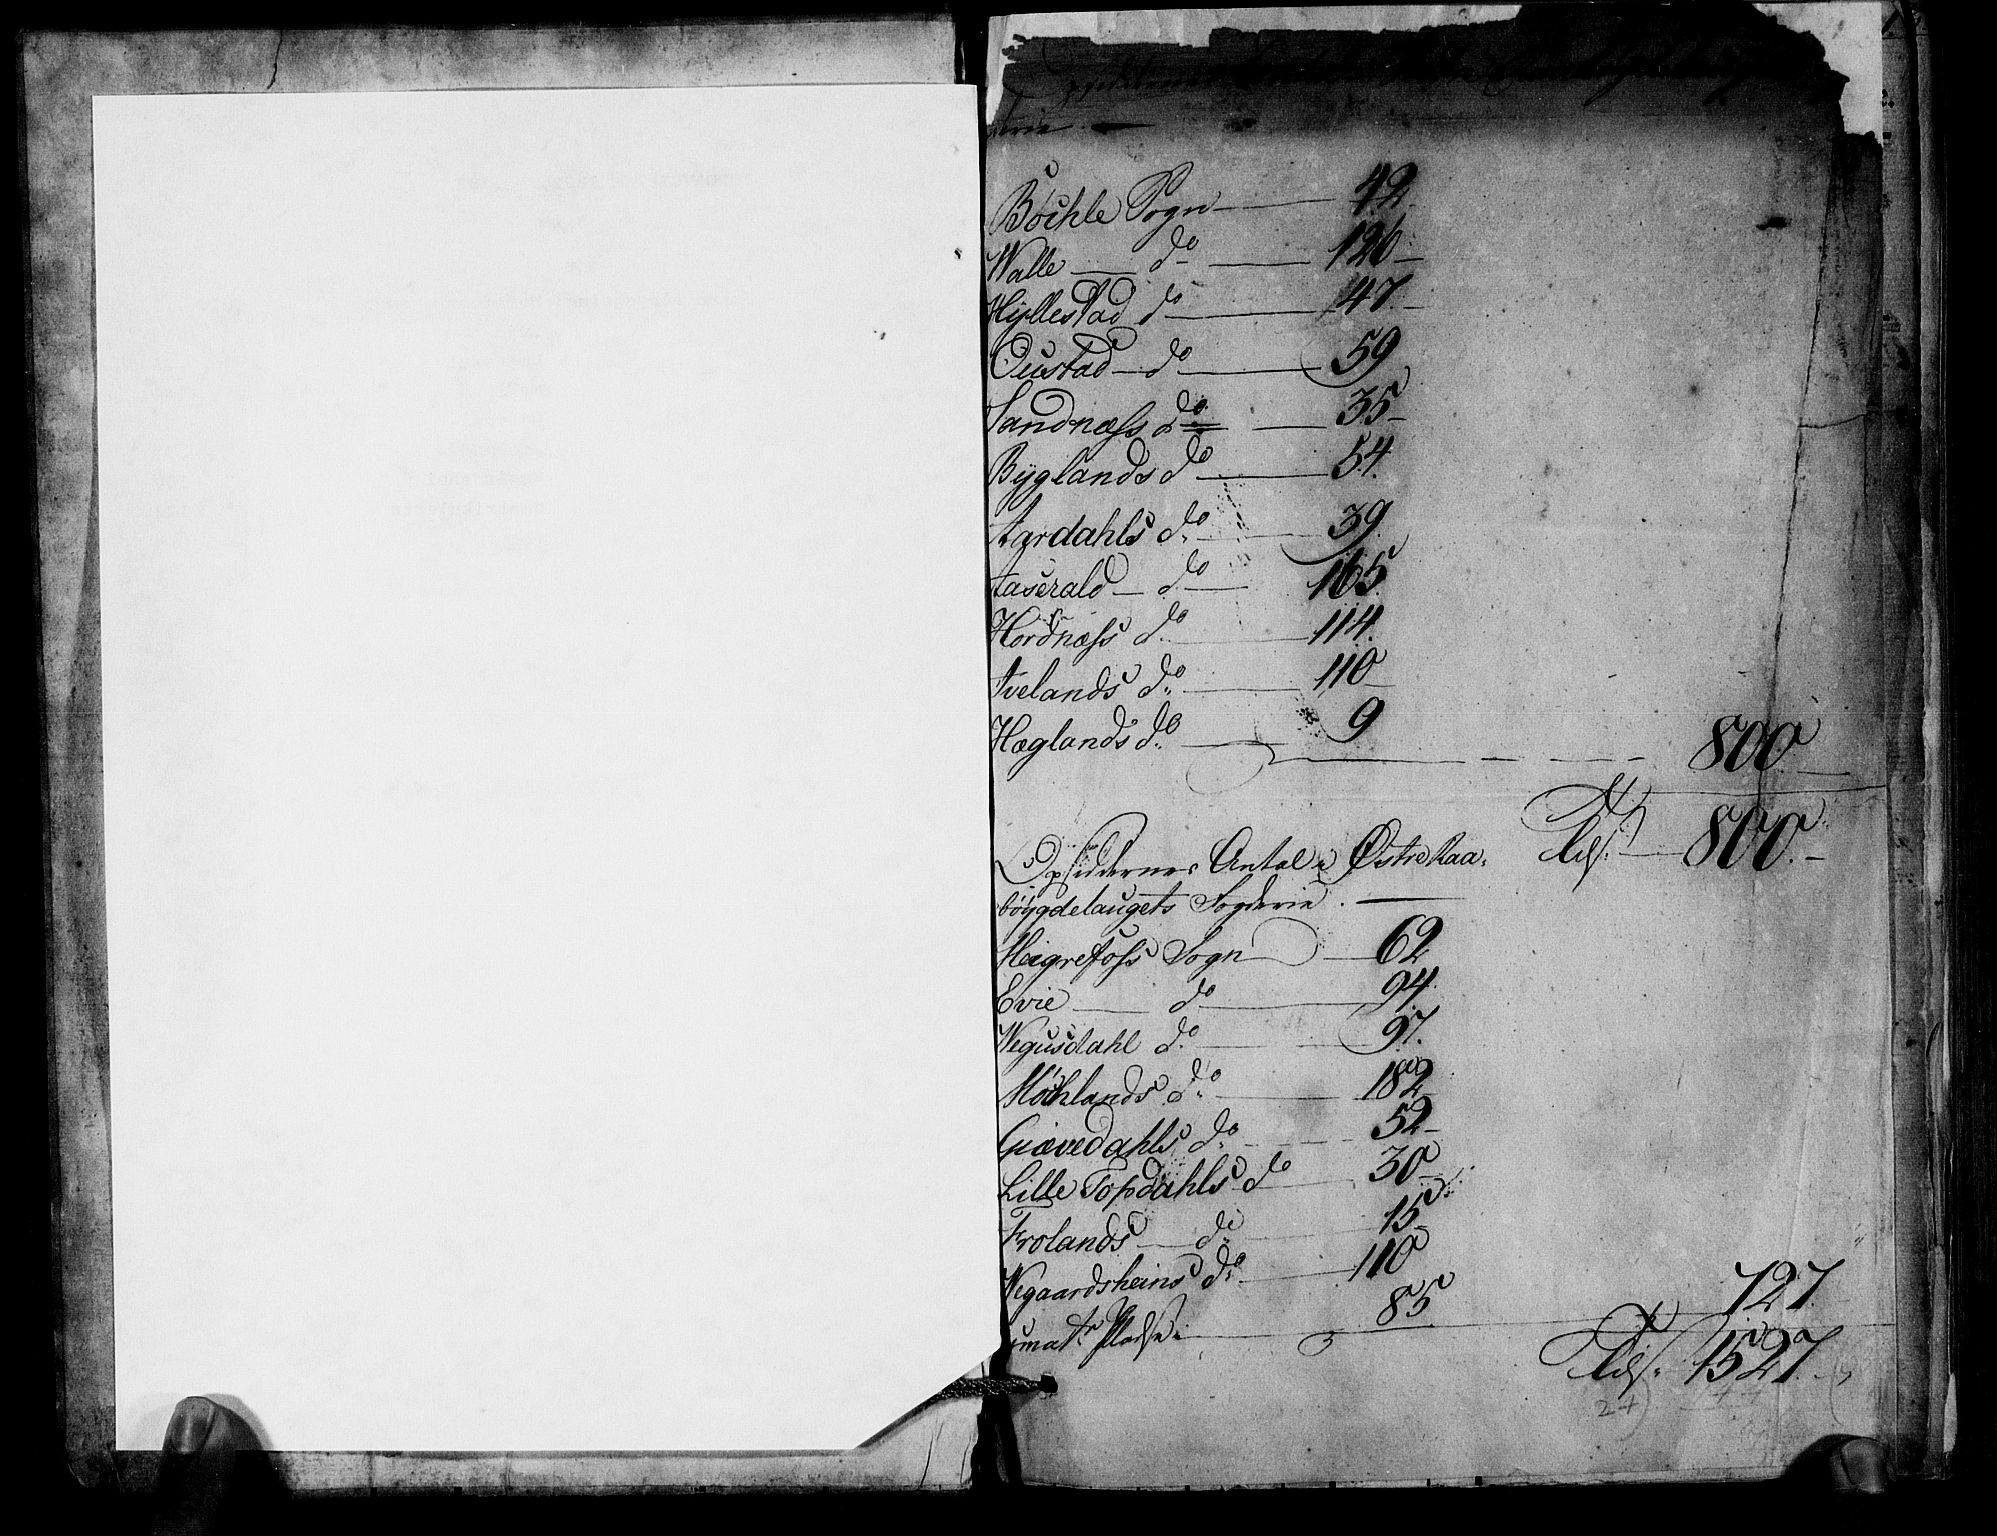 Bøihle Sogn 42
Walle do 126
Hyllestad do 47
Oustad do 59
Sandnæss do 35
Byglands do 54
Aardahls do 39
Aaserald do 165
Hordnæss do 114
Ivelands do 110
Hæglands do 9
800
Tils. 800
Opsiddernes Antal i Østre Raa-
bøygdelaugets Sogderie.
Heigrefoss Sogn 62
Evie do 94
Wegusdahl do 97
Møhlands do 182
Giævedahls do 52
Lille Topdahls do 30
Frolands do 15
Wegaardsheins do 110
umatr. Pladse 85
727
Tils. 1527
24